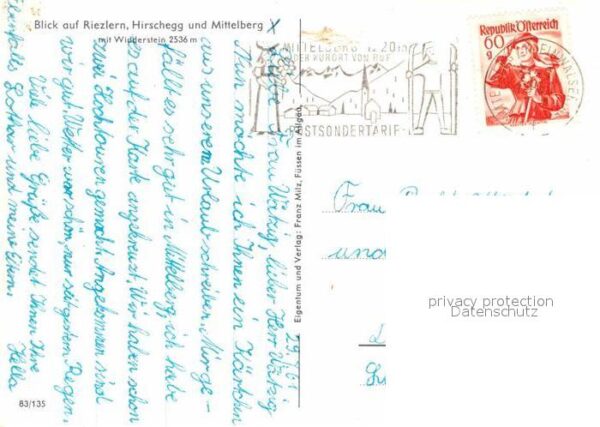 Blick auf Riezlern, Hirschegg und Mittelberg
mit Widderstein 2536 m
MITTELBERG
DER KURORT VON RUF
POSTSONDERTARIF
Republik Österreich
60
g
Frau Wätzig, lieber Herr Wätzig
Nun möchte ich Ihnen ein Kärtchen
aus unserem Urlaub schreiben. Mir ge-
fällt es sehr gut in Mittelberg, ich habe
es auf der Karte angekreuzt. Wir haben schon
zwei Hochtouren gemacht. Angekommen sind
wir gut. Wetter war schön, nur seit gestern Regen.
Viele liebe Grüße sendet Ihnen Ihre
Hella
Ebenfalls Lothar und meine Eltern.
Eigentum und Verlag: Franz Milz, Füssen im Allgäu
Frau
und
privacy protection
Datenschutz
83/135